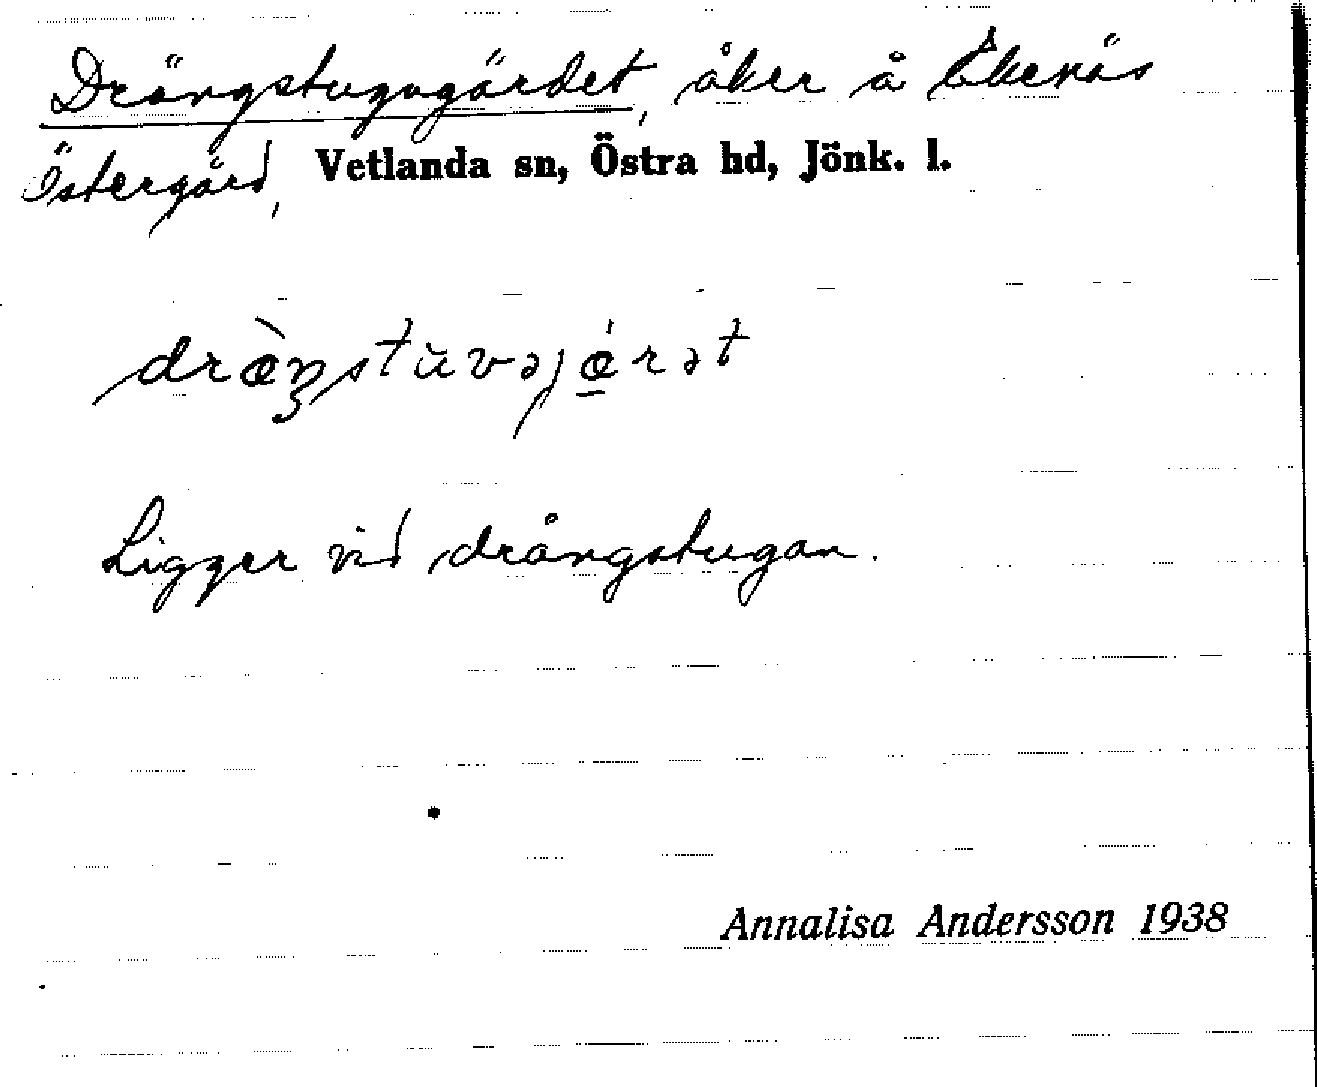 Drängstugugärdet, åker å Ekenäs
Östergård, Vetlanda sn, Östra hd, Jönk. l.
dræ̀ŋstŭvəjǽ̲rət
Ligger vid drängstugan.
Annalisa Andersson 1938